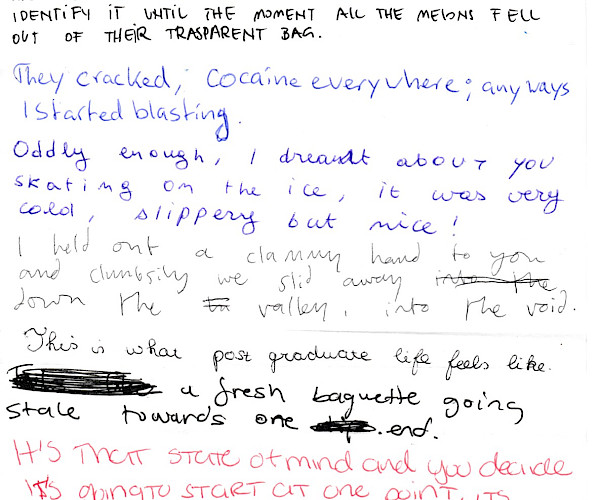 IDENTIFY IT UNTIL THE MOMENT ALL THE MELONS FELL
OUT OF THEIR TRASPARENT BAG.
They cracked, Cocaine everywhere; any ways
I started blasting.
Oddly enough, I dreamt about you
skating on the ice, it was very
cold, slippery but nice!
I held out a clammy hand to you
and clumbsily we slid away into the
down the valley, into the void.
This is what post graduate life feels like.
a fresh baguette going
stale towards one end.
It's that state of mind and you decide
It's going to start at one point, its